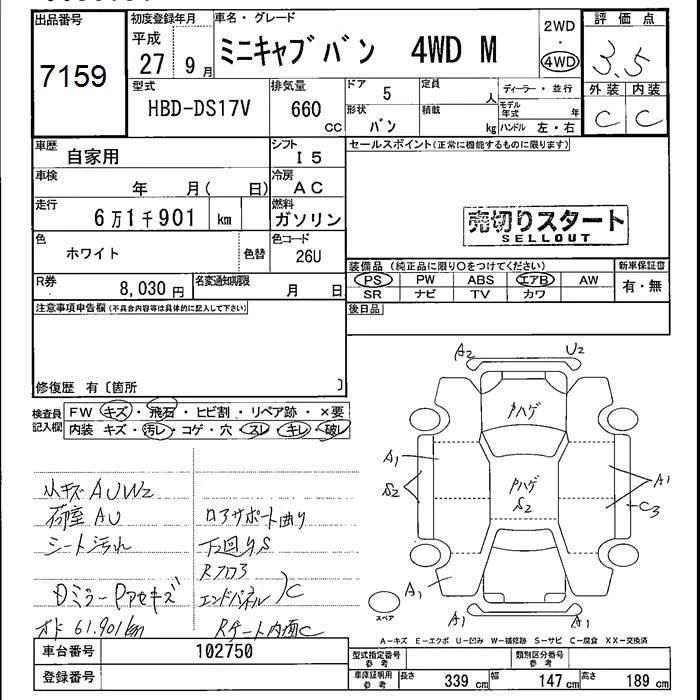 出品番号
7159
初度登録年月
平成
27 9月
車名・グレード
ミニキャブバン 4WD M
2WD
4WD
評価点
3.5
外装 内装
C C
型式
HBD-DS17V
排気量
660
CC
ドア
5
定員
人
形状
バン
積載
kg
ディーラー・並行
モデル年式 年
ハンドル 左・右
車歴
自家用
シフト
I5
車検
年 月( 日)
冷房
AC
走行
6万1千901 km
燃料
ガソリン
色
ホワイト
色替
色コード
26U
R券
8,030円
名変通知期限
月 日
セールスポイント(正常に機能するものに限ります)
売切りスタート
SELLOUT
装備品 (純正品に限り○をつけてください)
PS PW ABS エアB AW
SR ナビ TV カワ
新車保証書
有・無
後日品
注意事項申告欄(不具合内容等は具体的に記入して下さい)
修復歴 有〔箇所 〕
検査員記入欄
FW キズ・飛石・ヒビ割・リペア跡・×要
内装 キズ・汚レ・コゲ・穴・スレ・キレ・破レ
小キズAUW2
荷室AU
シート汚れ
DミラーPアセキズ
オド 61.901km
ロアサポート曲り
下回りS
Rフロア
エンドパネル )C
Rゲート内面C
A2 U2
Pハゲ
A1
S2
Pハゲ
S2
A1
C3
A1
A1 A1
スペア
A-キズ E-エクボ U-凹み W-補修跡 S-サビ C-腐食 XX-交換済
車台番号
102750
登録番号
型式指定番号
参考
類別区分番号
参考
車庫証明用
参考
長さ 339cm 幅 147cm 高さ 189cm